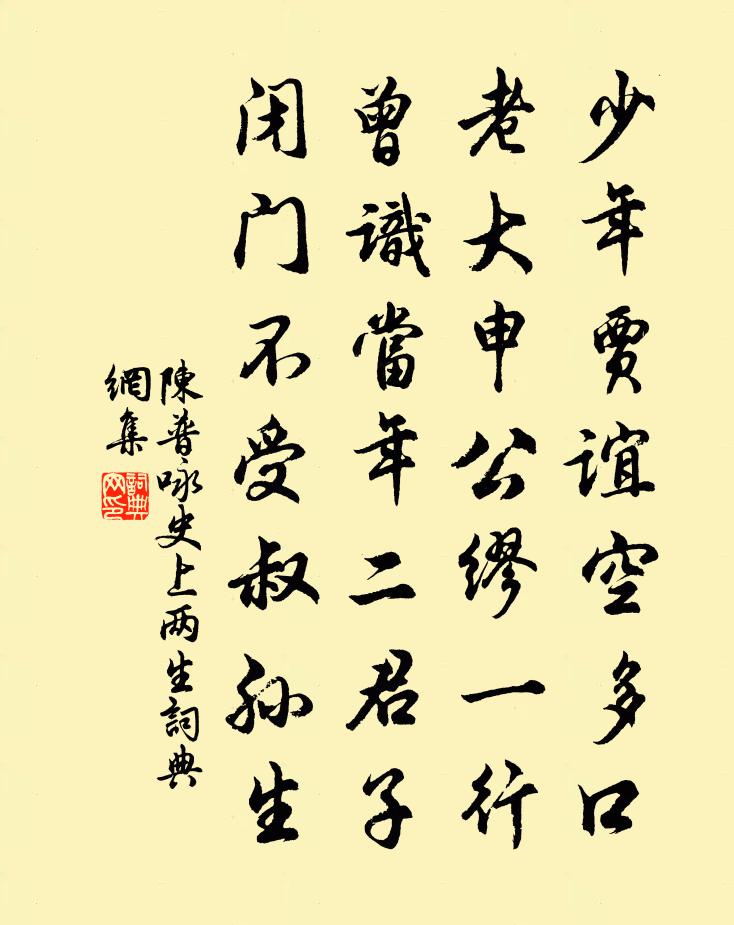 少年贾谊空多口
老大申公缪一行
曾識當年二君子
闭门不受叔孙生
陳普咏史上两生詞典
網集
詞典
网印